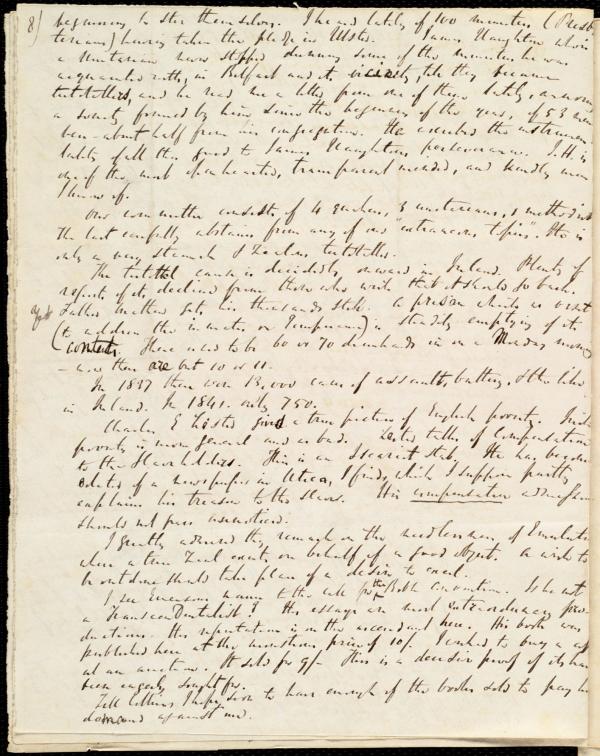 8/ beginning to stir themselves. I heard lately of 100 ministers (Presby
terians) having taken the pledge in Ulster. James Haughton who is
a Unitarian never stopped dunning some of the ministers he was
acquainted with, in Belfast and its vicinity, till they became
teetotallers, and he read me a letter from one of them lately, announcing
a society formed by him since the beginning of the year, of 53 mem
bers - about half from his congregation. He ascribed the instrumen
tality of all this good to James Haughton's perseverance. J.H. is
one of the most openhearted, transparent minded, and kindly men
I know of.
Our committee consists of 4 quakers, 3 unitarians, 1 methodist
The last carefully abstains from any of our "extraneous topics". He is
only a very staunch & zealous teetotaller.
The teetotal cause is decidedly onward in Ireland. Plenty of
reports of its decline from those who wish that it should go back.
Father Mathew gets his thousands still. A prison which we visit
(to address the inmates on Temperance) is steadily emptying of its
contents. There used to be 60 or 70 drunkards in on a Monday morning
- now there are but 10 or 11.
In 1837 there were 13,000 cases of assaults, battery, & the like
in Ireland. In 1841. only 750.
Charles E Lester gives a true picture of English poverty. Irish
poverty is more general and as bad. Lester talks of Compensation
to the Slaveholders. This is an Iscariot stab. He has become
editor of a newspaper in Utica, I find, which I suppose partly
explains his treason to the slaves. His compensation
should not pass unnoticed.
I greatly admired thy remark on the needlessness of Emulation
when a true zeal exists on behalf of a good object. A wish to
be outdone should take place of a desire to excel.
I see Emerson's name to the call for the Bible convention. Is he not
a Transcendentalist? His essays are most extraordinary pro-
ductions. His reputation is on the ascendant here. His book was
published here at the monstrous price of 10/. I wished to buy a copy
at an auction. It sold for 9/- This is a decisive proof of its having
been eagerly sought for.
Tell Collins I hope soon to have enough of the books sold to pay his
demand against me.